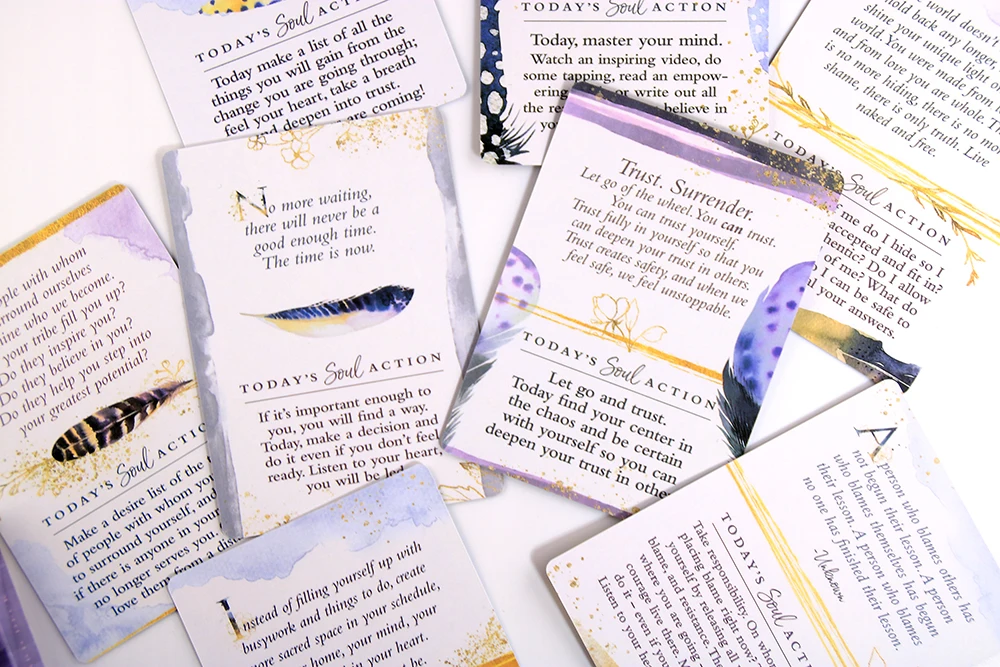 TODAY'S Soul ACTION
Today make a list of all the
things you will gain from the
change you are going through;
feel your heart, take a breath
and deepen into trust.
are coming!
TODAY'S Soul ACTION
Today, master your mind.
Watch an inspiring video, do
some tapping, read an empow-
ering or write out all
the believe in
world doesn't
hold back any longer,
shine your unique light
world. You were made from
and from love you are whole. There
is no more hiding, there is no more
shame, there is only truth. Live
naked and free.
TODAY'S Soul ACTION
me do I hide so I
accepted and fit in?
Do I allow
of me? What do
I can be safe to
your answers.
No more waiting,
there will never be a
good enough time.
The time is now.
TODAY'S Soul ACTION
If it's important enough to
you, you will find a way.
Today, make a decision and
do it even if you don't feel
ready. Listen to your heart
you will be led
Trust. Surrender.
Let go of the wheel. You can trust.
You can trust yourself.
Trust fully in yourself so that you
can deepen your trust in others.
Trust creates safety, and when we
feel safe, we feel unstoppable.
TODAY'S Soul ACTION
Let go and trust.
Today find your center in
the chaos and be certain
with yourself so you can
deepen your trust in
with whom
surround ourselves
who we become.
your tribe fill you up?
Do they inspire you?
Do they believe in you?
Do they help you step into
your greatest potential?
TODAY'S Soul
Make a desire list of the
of people with whom you
to surround yourself, and
if there is anyone in your
no longer serves you
love them from a
Instead of filling yourself up with
busywork and things to do, create
more sacred space in your schedule,
your home, your mind, your
A person who blames others has
not begun their lesson. A person
who blames themselves has begun
their lesson. A person who blames
no one has finished their lesson.
Unknown
TODAY'S Soul
Take responsibility. On whom
placing blame right now?
yourself by releasing all
blame, and resistance.
where you are going
courage live there.
do it – even if you
Listen to your